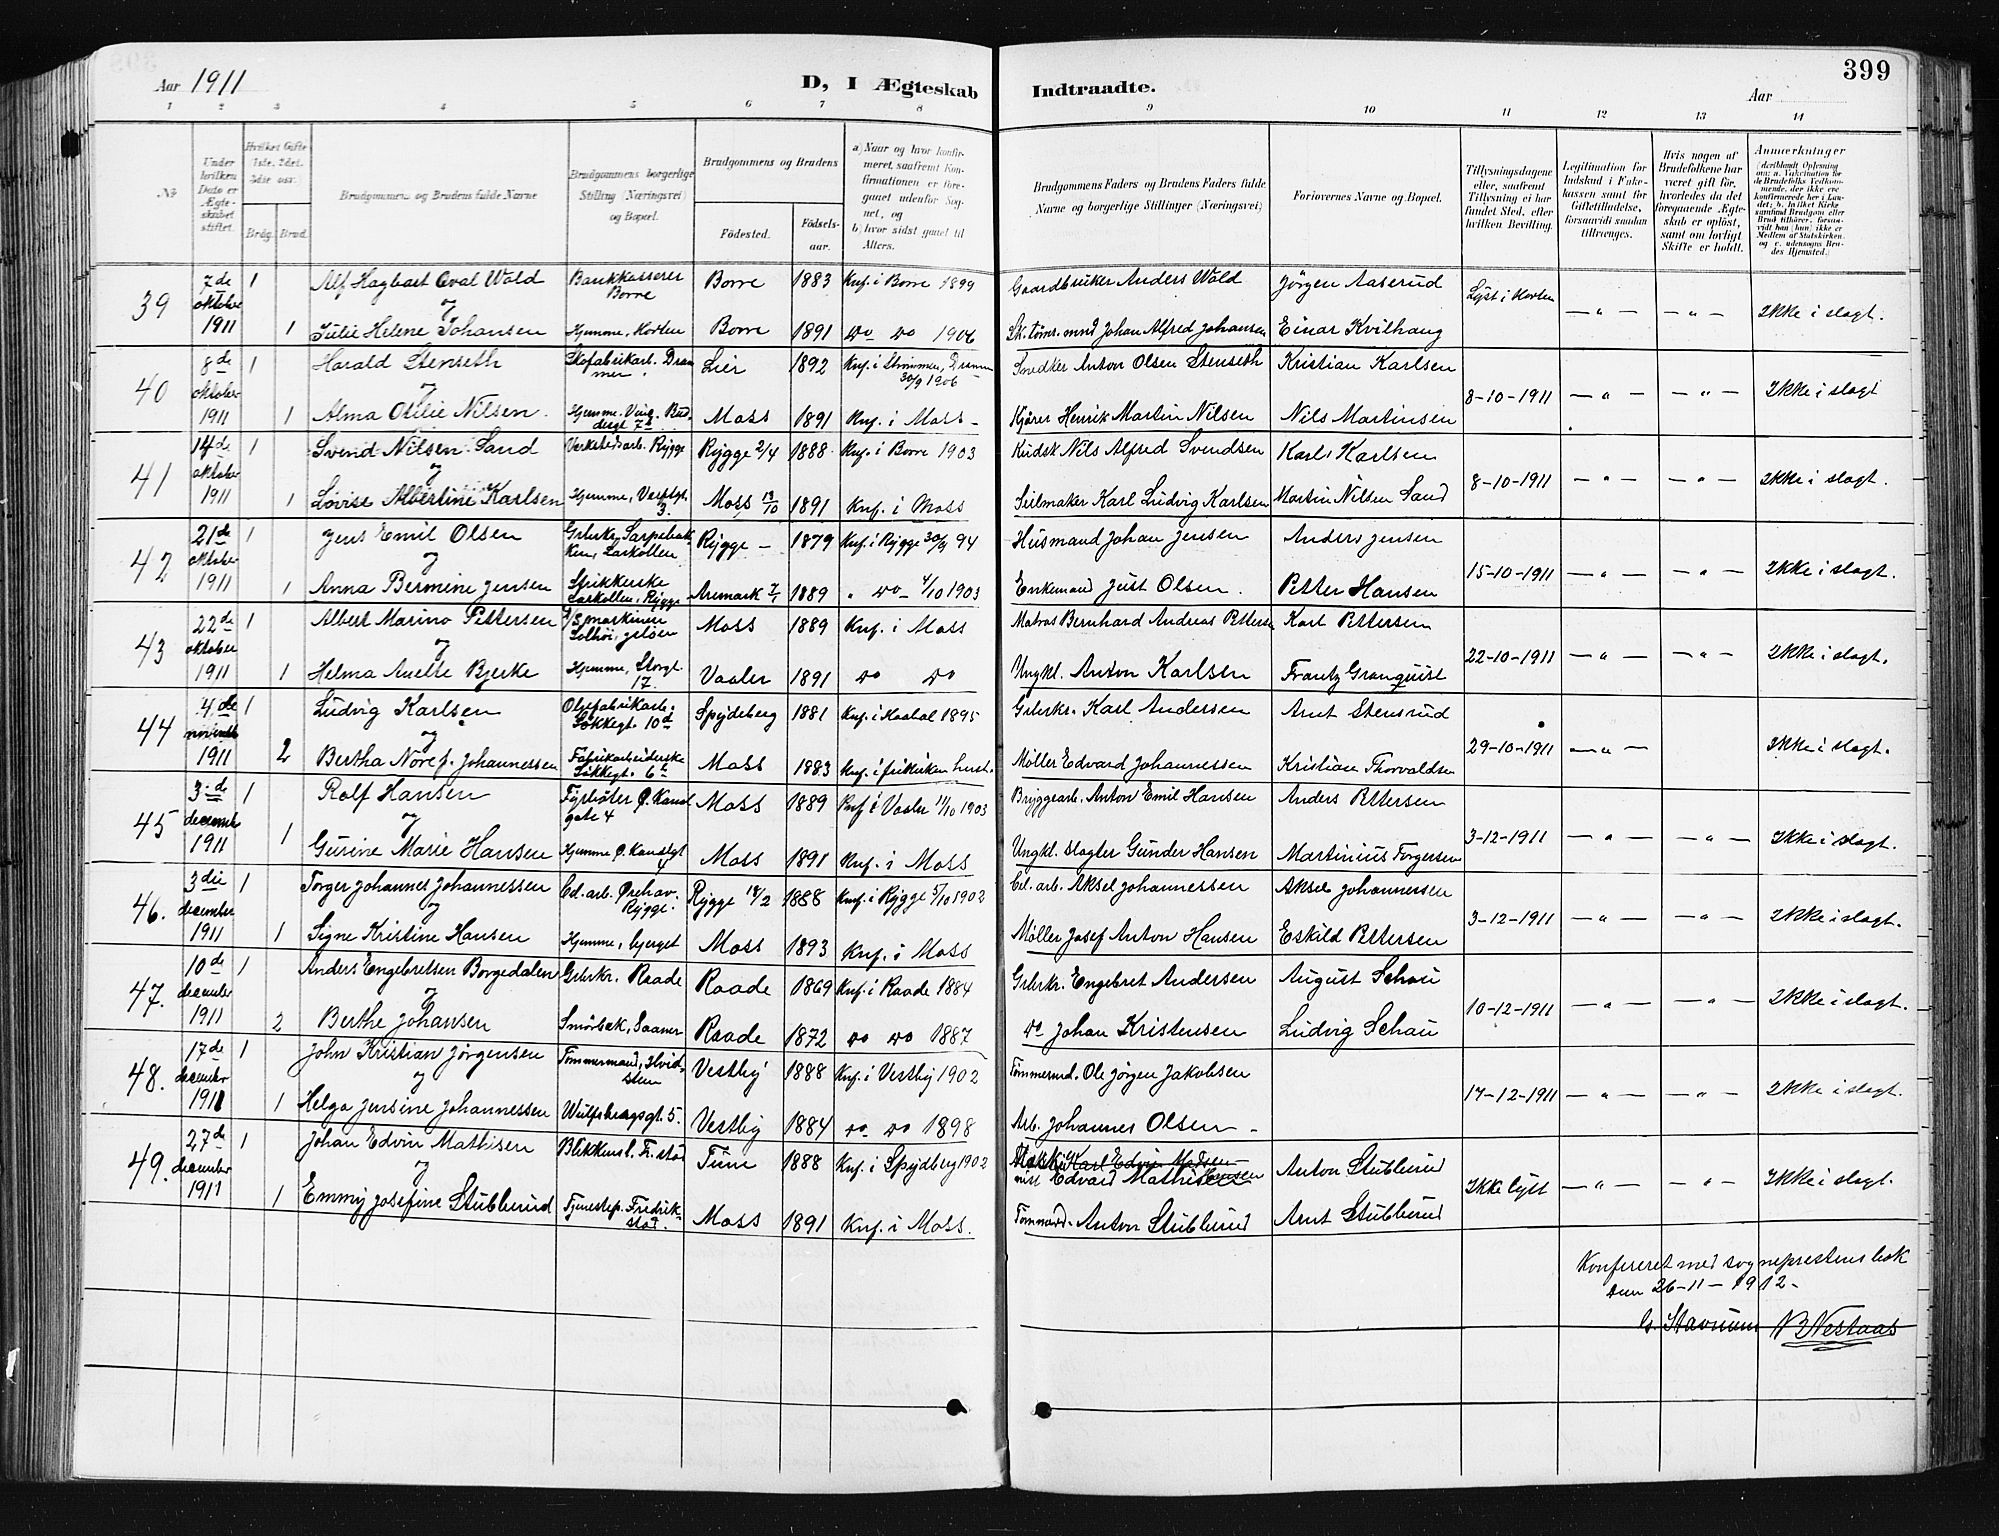 399
Aar 1911
D, I Ægteskab Indtraadte.
Aar
1 2 3 4 5 6 7 8 9 10 11 12 13 14
№
Under hvilken Dato er Ægteskabet stiftet.
Hvilket Gifte
Brdg. Brud.
Brudgommens og Brudens fulde Navne
Brudgommens borgerlige Stilling (Næringsvei) og Bopæl.
Brudgommens og Brudens
Fødested.
Fødselsaar.
a) Naar og hvor konfirmeret, saafremt Konfirmationen er foregaaet udenfor Sognet, og
b) hvor sidst gaaet til Alters.
Brudgommens Faders og Brudens Faders fulde Navne og borgerlige Stillinger (Næringsvei)
Forlovernes Navne og Bopæl.
Tillysningsdagene eller, saafremt Tillysning ei har fundet Sted, efter hvilken Bevilling.
Legitimation for Indskud i Enkekassen samt for Giftetilladelse, forsaavidt saadan tiltrænges.
Hvis nogen af Brudefolkene har været gift før, hvorledes da det foregaaende Ægteskab er opløst, samt om lovligt Skifte er holdt.
Anmerkninger
39 7de oktober 1911 1 Alf Hagbart Oval Wold Bankkasserer Borre Borre 1883 Knf. i Borre 1899 Gaardbruker Anders Wold Jørgen Aaserud Lyst i Horten — „ — — „ — Ikke i slagt.
og
1 Julie Helene Johansen Hjemme, Horten Borre 1891 do do 1906 Johan Alfred Johansen Einar Kvilhaug
40 8de oktober 1911 1 Harald Stenseth Skofabrikarb. Drammen Lier 1892 Knf. i Strømmen, Drammen 30/9 1906 Snedker Anton Olsen Stenseth Kristian Karlsen 8-10-1911 — „ — — „ — Ikke i slagt
og
1 Alma Otilie Nilsen. Hjemme, Moss 1891 Knf. i Moss — Kjører Henrik Martin Nilsen Nils Martinsen
41 14de oktober 1911 1 Svend Nilsen Sand Verkstedarb. Rygge Rygge 2/4 1888 Knf. i Borre 1903 Kudsk Nils Alfred Svendsen Karl Karlsen 8-10-1911 — „ — — „ — Ikke i slagt.
og
1 Lovise Albertine Karlsen Hjemme, 3. Moss 19/10 1891 Knf. i Moss Seilmaker Karl Ludvig Karlsen Martin Nilsen Sand
42 21de oktober 1911 1 Jens Emil Olsen Larkollen Rygge — 1879 Knf. i Rygge 30/9 94 Husmand Johan Jensen Anders Jensen 15-10-1911 — „ — — „ — Ikke i slagt.
og
1 Anna Bermine Jensen Strikkerske Larkollen, Rygge Aremark 1889 „ do — 4/10 1903 Enkemand Just Olsen. Petter Hansen
43 22de oktober 1911 1 Albert Marino Pettersen Solhøi, Jeløen Moss 1889 Knf. i Moss Matros Bernhard Andreas Pettersen Karl Pettersen 22-10-1911 — „ — — „ — Ikke i slagt.
og
1 Helma Anette Bjerke Hjemme, Storgt. 17. Vaaler 1891 do do Ungkl. Anton Karlsen Frantz Granquist
44 4de november 1911 1 Ludvig Karlsen 10d Spydeberg 1881 Knf. i Haabøl 1895 Grbrkr. Karl Andersen Arnt Stensrud 29-10-1911 — „ — Ikke i slagt.
og
2 Bertha Nore f. Johannessen Fabrikarbeiderske Moss 1883 Knf. i frikirken herst. Møller Edvard Johannessen Kristian Thorvaldsen
45 3de december 1911 1 Rolf Hansen Fyrbøter Ø. Kanalgate 4 Moss 1889 Knf i Vaaler 11/10 1903 Bryggearb. Anton Emil Hansen Anders Pettersen 3-12-1911 — „ — — „ — Ikke i slagt.
og
1 Gurine Marie Hansen Hjemme Ø. Kanalgt 4 Moss 1891 Knf. i Moss Ungkl. slagter Gunder Hansen Martinius Torgersen
46. 3die december 1911 1 Torger Johannes Johannessen Cel. arb. Ørehav. Rygge. Rygge 18/2 1888 Knf. i Rygge 5/10 1902 Cel. arb. Aksel Johannessen Aksel Johannessen 3-12-1911 — „ — — „ — Ikke i slagt.
og
1 Signe Kristine Hansen Hjemme, bjerget Moss 1893 Knf. i Moss Møller Josef Anton Hansen Eskild Pettersen
47. 10de december 1911 1 Anders Engebretsen Borgedalen Grbrkr. Raade Raade 1869 Knf. i Raade 1884 Grbrkr. Engebret Andersen August Schou 10-12-1911 — „ — — „ — Ikke i slagt.
og
2 Berthe Johansen Smørbæk, Saaner Raade 1872 do do 1887 do Johan Kristensen Ludvig Schau
48. 17de december 1911 1 John Kristian Jørgensen Tømmermand, Hvidsten Vestby 1888 Knf. i Vestby 1902 Tømmermd. Ole Jørgen Jakobsen 17-12-1911 — „ — — „ — Ikke i slagt.
og
1 Helga Jensine Johannessen Wulfsbergsgt. 5. Vestby 1884 do do 1898 Arb. Johannes Olsen —
49. 27de december 1911 1 Johan Edvin Mathisen Blikkensl. Fr.stad Tune 1888 Knf. i Spydberg 1902 Karl Edvin Edvard Mathisen Anton Stubberud Ikke lyst — „ — — „ — Ikke i slagt.
og
1 Emmy Josefine Stubberud Tjenestep. Fredrikstad. Moss 1891 Knf. i Moss. Tømmermd. Anton Stubberud Arnt Stubberud
Konfereret med sogneprestens bok
den 26-11-1912-
G. Stavrum N B Nestaas